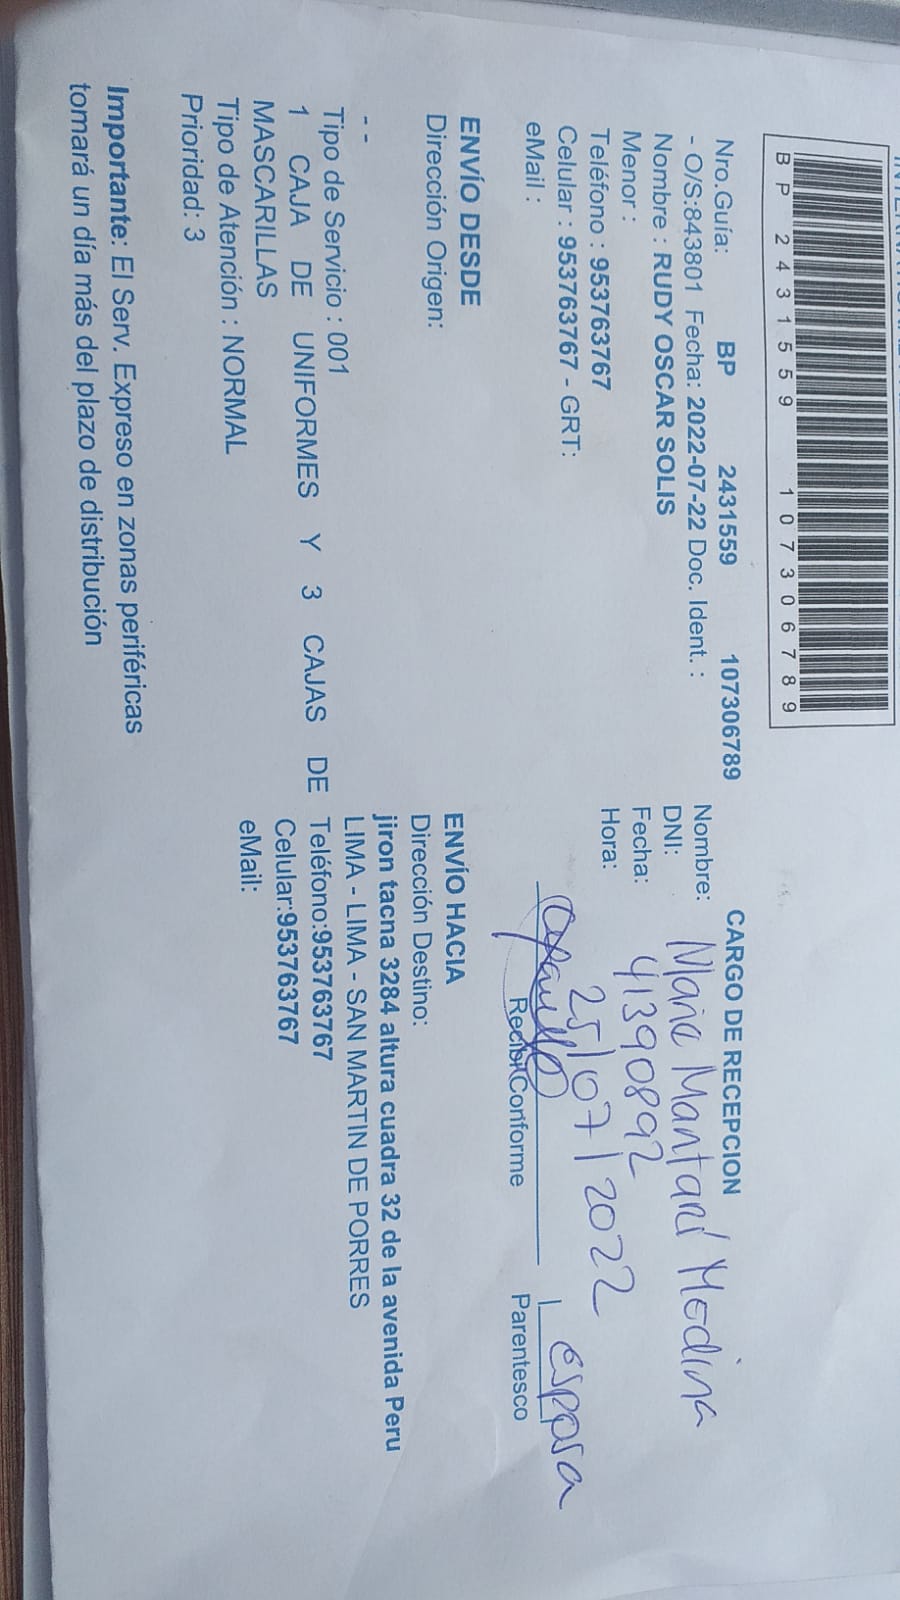 BP 2431559 107306789
Nro.Guía: BP 2431559 107306789
- O/S:843801 Fecha: 2022-07-22 Doc. Ident. :
Nombre : RUDY OSCAR SOLIS
Menor :
Teléfono : 953763767
Celular : 953763767 - GRT:
eMail :
CARGO DE RECEPCION
Nombre: Maria Mantari Medina
DNI: 41390892
Fecha: 25/07/2022
Hora:
Recibí Conforme
esposa
Parentesco
ENVÍO DESDE
Dirección Origen:
- -
Tipo de Servicio : 001
1 CAJA DE UNIFORMES Y 3 CAJAS DE
MASCARILLAS
Tipo de Atención : NORMAL
Prioridad: 3
ENVÍO HACIA
Dirección Destino:
jiron tacna 3284 altura cuadra 32 de la avenida Peru
LIMA - LIMA - SAN MARTIN DE PORRES
Teléfono:953763767
Celular:953763767
eMail:
Importante: El Serv. Expreso en zonas periféricas
tomará un día más del plazo de distribución